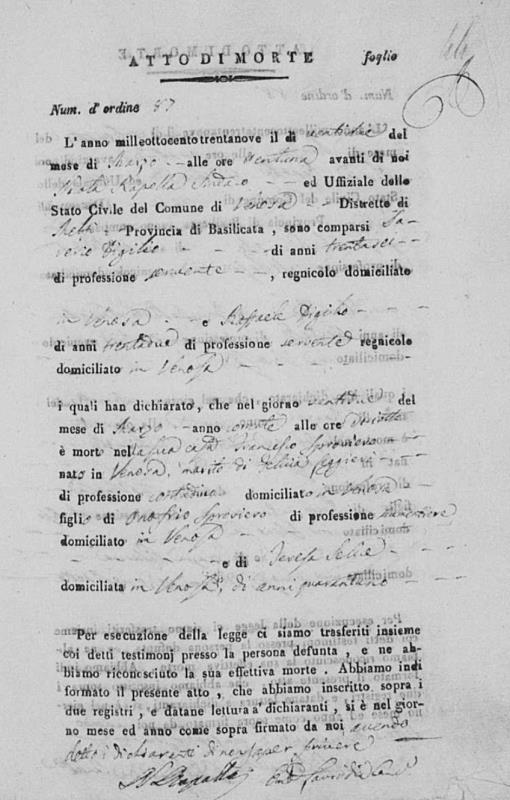 ATTO DI MORTE foglio
Num. d'ordine 57
L'anno milleottocento trentanove il dì ventidue del
mese di Marzo alle ore ventuna avanti di noi
Rapolla Sindaco ed Uffiziale dello
Stato Civile del Comune di Venosa Distretto di
Melfi Provincia di Basilicata, sono comparsi Sa-
verio Digilio di anni trentasei
di professione servente, regnicolo domiciliato
in Venosa e Raffaele Digilio
di anni trentadue di professione servente regnicolo
domiciliato in Venosa
i quali han dichiarato, che nel giorno ventidue del
mese di Marzo anno corrente alle ore diciotto
è morto nella sua casa Francesco Sproviero
nato in Venosa, marito di
di professione contadino domiciliato in Venosa
figlio di Onofrio Sproviero di professione
domiciliato in Venosa
e di Teresa
domiciliata in Venosa, di anni quarantuno
Per esecuzione della legge ci siamo trasferiti insieme
coi detti testimonj presso la persona defunta, e ne ab-
biamo riconosciuto la sua effettiva morte. Abbiamo indi
formato il presente atto, che abbiamo inscritto sopra i
due registri, e datane lettura a' dichiaranti, si è nel gior-
no mese ed anno come sopra firmato da noi avendo
detto i dichiaranti di non saper scrivere
Rapolla